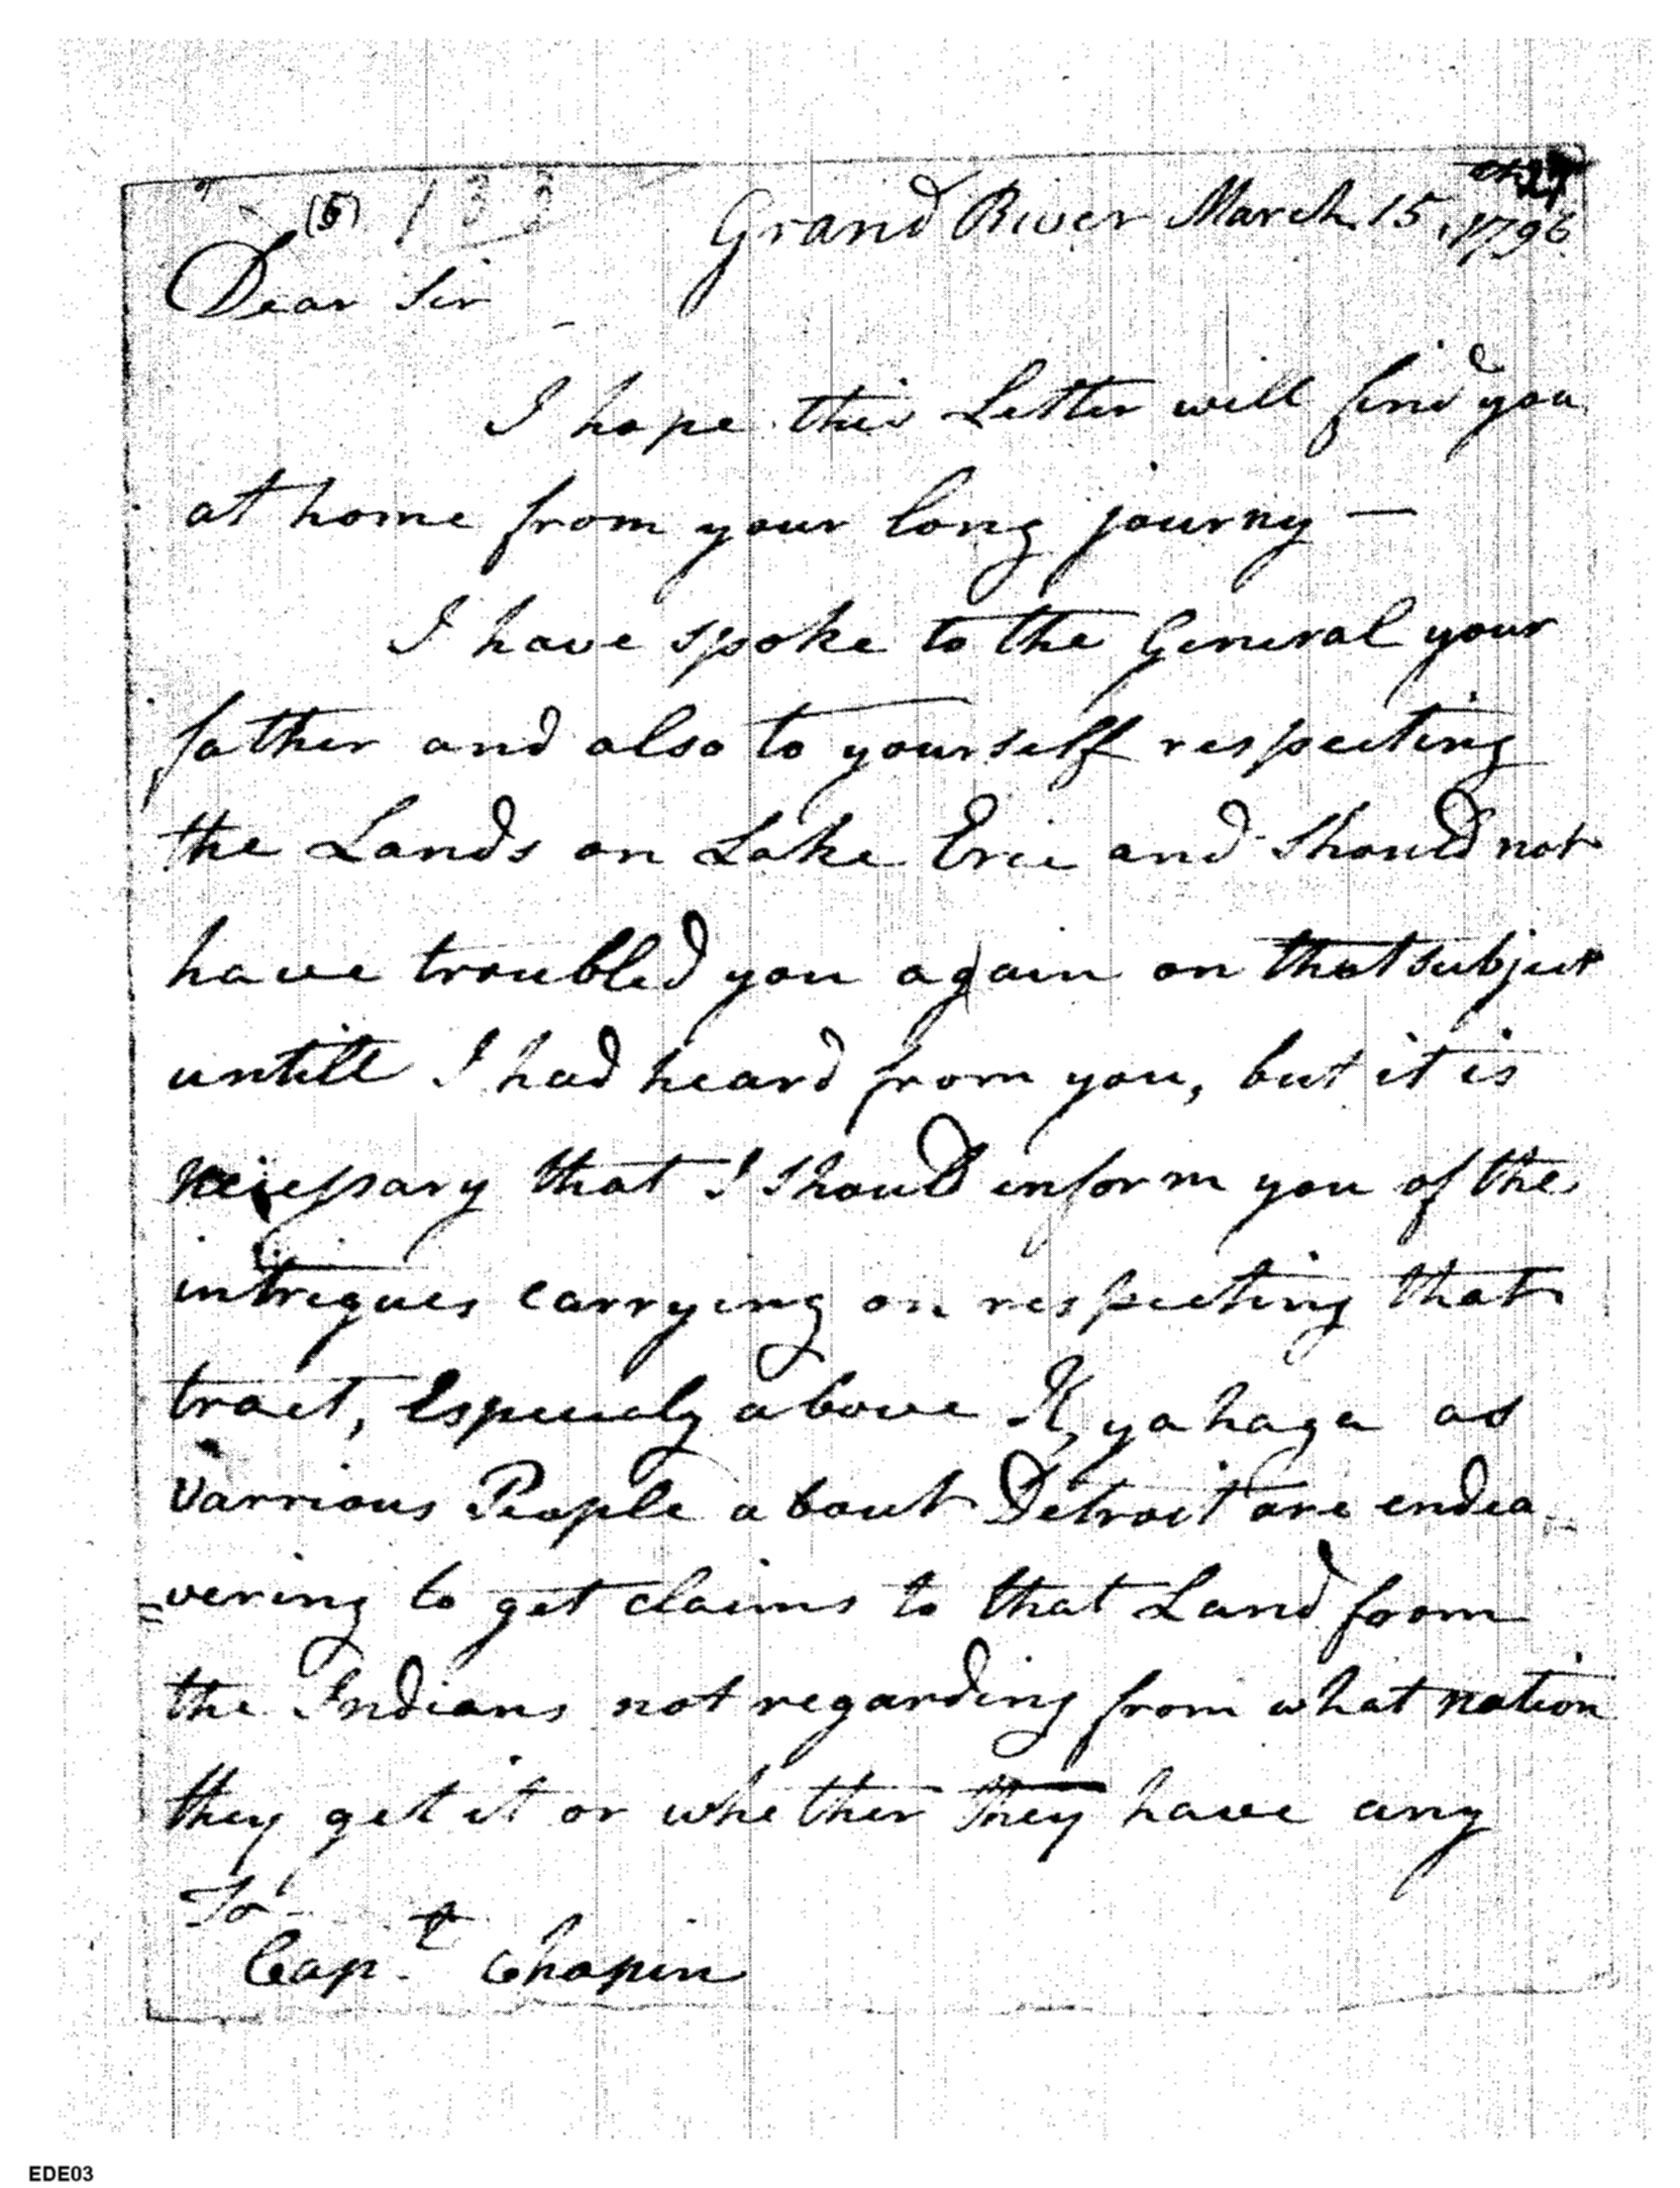 (5) 133
Grand River March 15, 1796
Dear Sir
I hope this Letter will find you
at home from your long journy —
I have spoke to the General your
father and also to yourself respecting
the Lands on Lake Erie and Should not
have troubled you again on that subject
untill I had heard from you, but it is
necessary that I Should inform you of the
intrigues carrying on respecting that
tract, Especialy above Kyahaga as
Varrious People about Detroit are endea
=vering to get claims to that Land from
the Indians not regarding from what nation
they get it or whether they have any
To
Capt. Chapin
EDE03